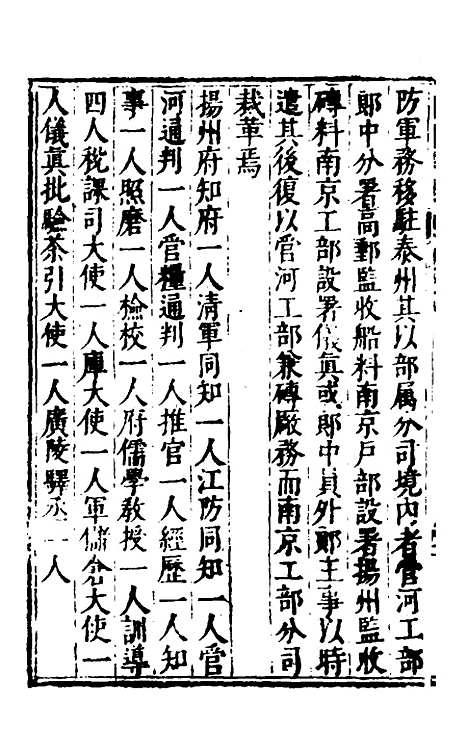 防軍務移駐泰州其以部属分司境內者管河工部
郎中分署高郵監收船料南京戶部設署揚州監收
磚料南京工部設署儀真或郎中員外郎主事以時
遣其後復以管河工部兼磚厰務而南京工部分司
裁革焉
揚州府知府一人清軍同知一人江防同知一人管
河通判一人管糧通判一人推官一人經歷一人知
事一人照磨一人檢校一人府儒學教授一人訓導
四人稅課司大使一人庫大使一人軍儲倉大使一
人儀真批驗茶引大使一人廣陵驛丞一人